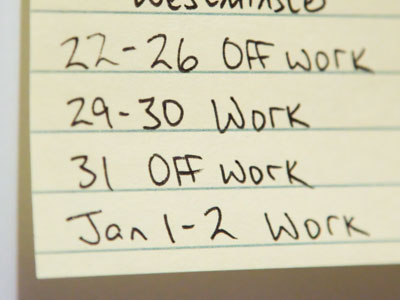 Westminste
22-26 Off work
29-30 Work
31 Off work
Jan 1-2 Work